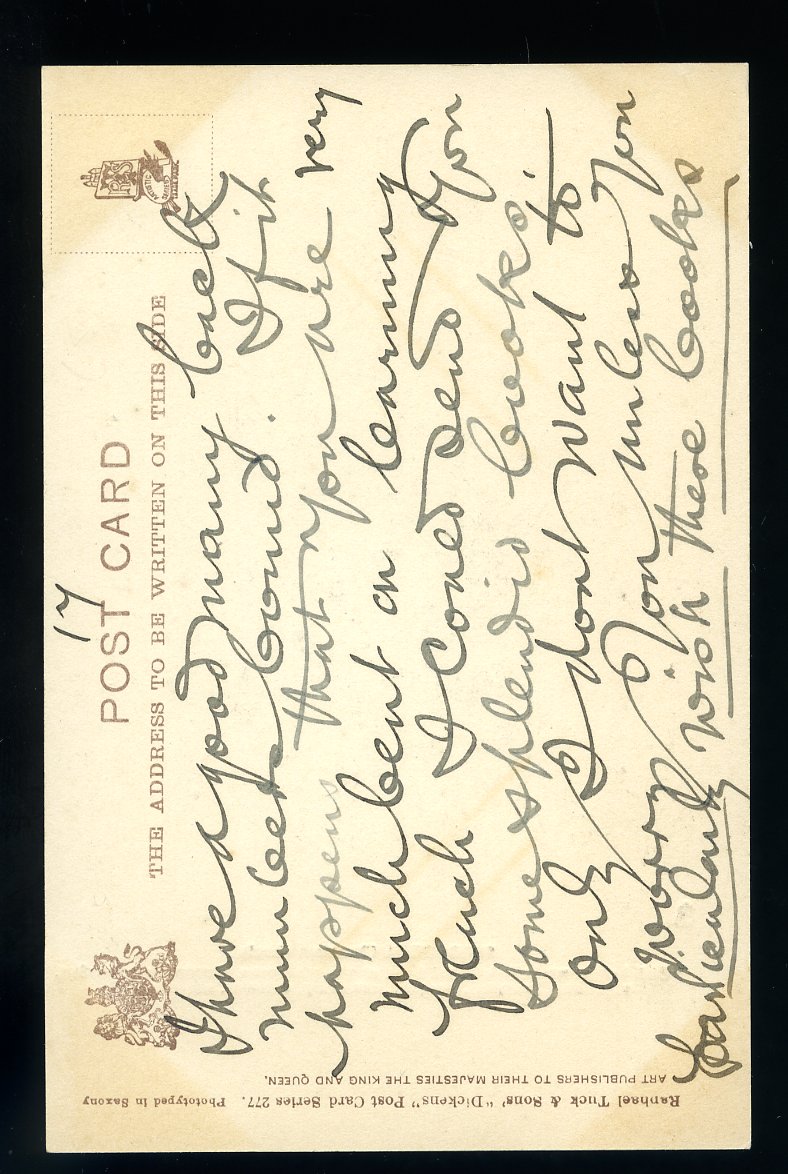 17
POST CARD
THE ADDRESS TO BE WRITTEN ON THIS SIDE
I have a good many back
numbers bound. If it
happens that you are very
much bent on learning
french I could send you
some splendid books
only I dont want to
worry you unless you
particularly wish these books
Raphael Tuck & Sons' "Dickens" Post Card Series 277. Phototyped in Saxony
ART PUBLISHERS TO THEIR MAJESTIES THE KING AND QUEEN.